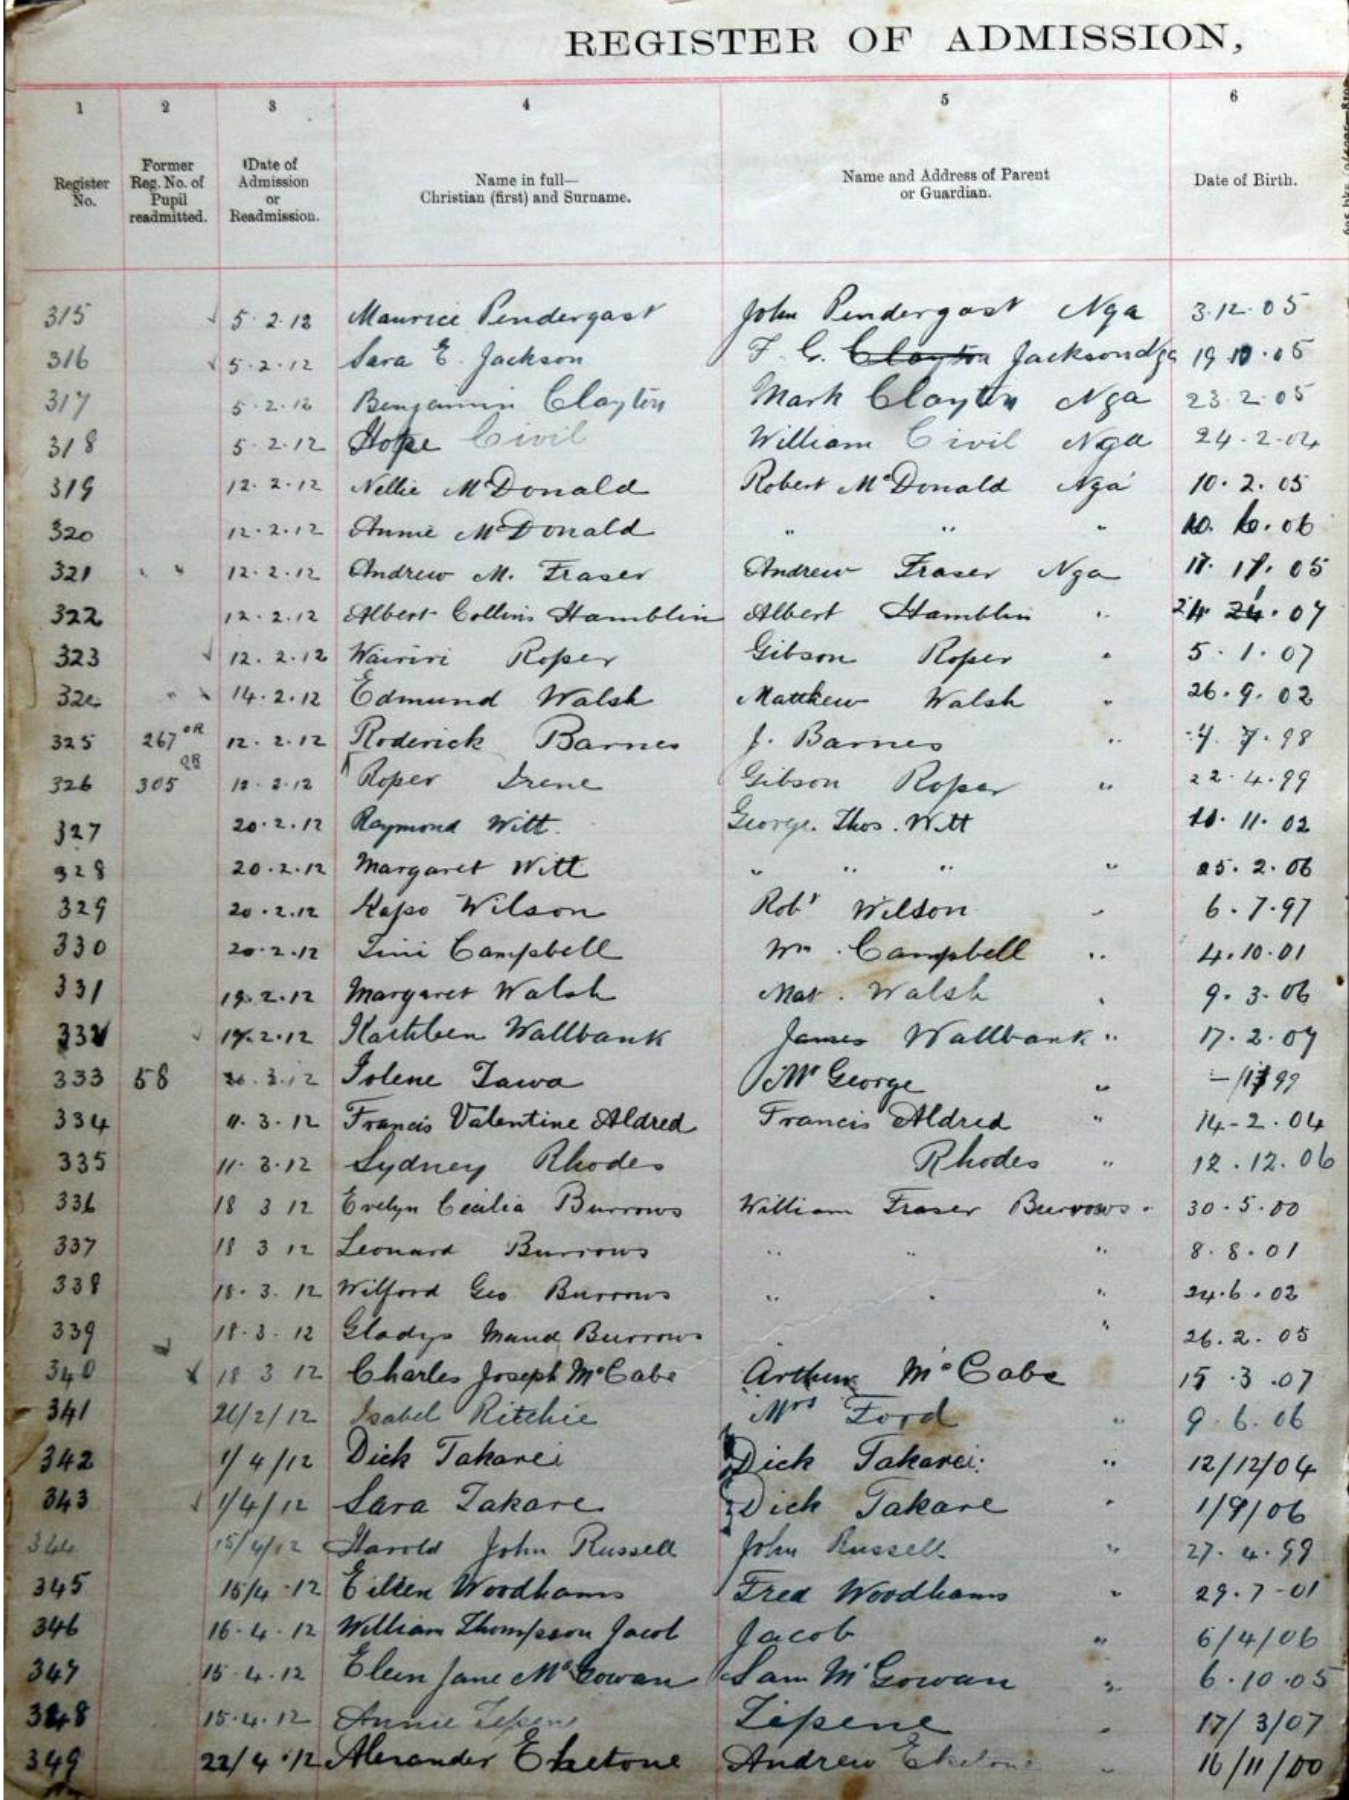 REGISTER OF ADMISSION,
1 2 3 4 5 6
Register No. Former Reg. No. of Pupil readmitted. Date of Admission or Readmission. Name in full— Christian (first) and Surname. Name and Address of Parent or Guardian. Date of Birth.
315 5.2.12 Maurice Pendergast John Pendergast Nga 3.12.05
316 5.2.12 Sara E. Jackson F. G. Clayton Jackson Nga 19.10.05
317 5.2.12 Benjamin Clayton Mark Clayton Nga 23.2.05
318 5.2.12 Hope Civil William Civil Nga 24.2.04
319 12.2.12 Nellie McDonald Robert McDonald Nga 10.2.05
320 12.2.12 Annie McDonald " " " 10.6.06
321 12.2.12 Andrew M. Fraser Andrew Fraser Nga 05
322 12.2.12 Albert Collins Hamblin Albert Hamblin " 07
323 12.2.12 Wairiri Roper Gibson Roper " 5.1.07
324 14.2.12 Edmund Walsh Matthew Walsh " 26.9.02
325 267 OR 12.2.12 Roderick Barnes J. Barnes " 4.7.98
326 305 OR 12.2.12 Roper Irene Gibson Roper " 22.4.99
327 20.2.12 Raymond Witt. George. Thos. Witt 11.11.02
328 20.2.12 Margaret Witt " " " " 25.2.06
329 20.2.12 Kapo Wilson Robt Wilson " 6.7.97
330 20.2.12 Tini Campbell Wm. Campbell " 4.10.01
331 19.2.12 Margaret Walsh Mat. Walsh " 9.3.06
332 19.2.12 Kathleen Wallbank James Wallbank " 17.2.07
333 58 Iolene Tawa Mr George " 99
334 11.3.12 Francis Valentine Aldred Francis Aldred " 14-2.04
335 11.3.12 Sydney Rhodes Rhodes " 12.12.06
336 18 3 12 Evelyn Cecilia Burrows William Fraser Burrows " 30.5.00
337 18 3 12 Leonard Burrows " " " 8.8.01
338 18.3.12 Wilford Geo Burrows " " " 24.6.02
339 18.3.12 Gladys Maud Burrows " 26.2.05
340 18 3 12 Charles Joseph McCabe Arthur McCabe 15.3.07
341 26/2/12 Isabel Ritchie Mrs Ford " 9.6.06
342 1/4/12 Dick Takarei Dick Takarei " 12/12/04
343 1/4/12 Sara Takare Dick Takare " 1/9/06
344 15/4/12 Harold John Russell John Russell " 27.4.99
345 15/4.12 Eileen Woodhams Fred Woodhams " 29.7-01
346 16.4.12 William Thompson Jacob Jacob " 6/4/06
347 15.4.12 Eleen Jane McGowan Sam McGowan " 6.10.05
348 15.4.12 Annie Tepene Tepene " 17/3/07
349 22/4.12 Alexander Eketone Andrew Eketone " 16/11/00